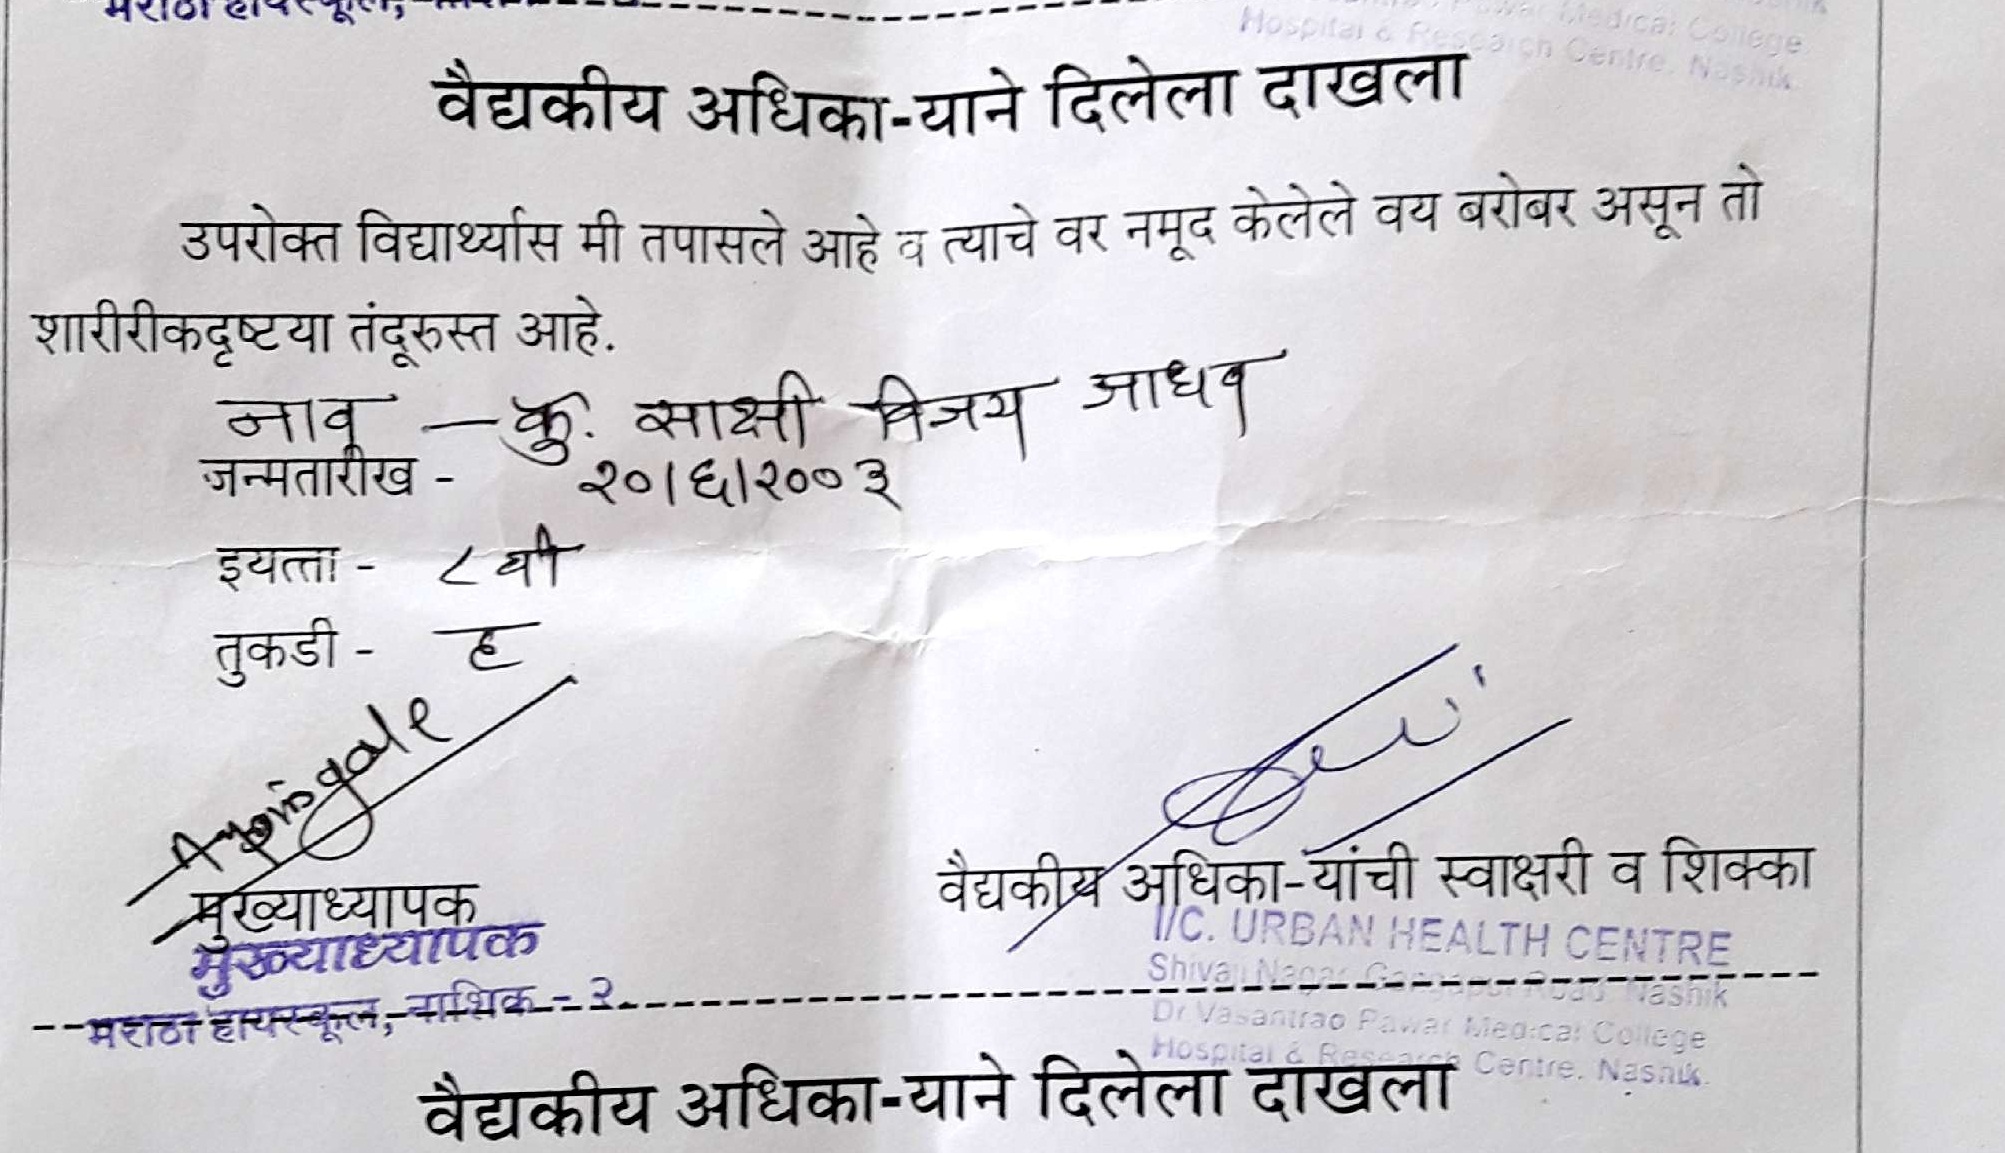 मराठा हायस्कूल,
Medical College
Hospital & Research Centre, Nashik
वैद्यकीय अधिका-याने दिलेला दाखला
उपरोक्त विद्यार्थ्यास मी तपासले आहे व त्याचे वर नमूद केलेले वय बरोबर असून तो
शारीरीकदृष्टया तंदूरुस्त आहे.
नाव - कु. साक्षी विजय जाधव
जन्मतारीख - २०/६/२००३
इयत्ता - ८ वी
तुकडी - ह
मुख्याध्यापक
वैद्यकीय अधिका-यांची स्वाक्षरी व शिक्का
मुख्याध्यापक
मराठा हायस्कूल, नाशिक - २.
I/C. URBAN HEALTH CENTRE
Shivaji Nagar, Gangapur Road, Nashik
Dr Vasantrao Pawar Medical College
Hospital & Research Centre, Nashik.
वैद्यकीय अधिका-याने दिलेला दाखला